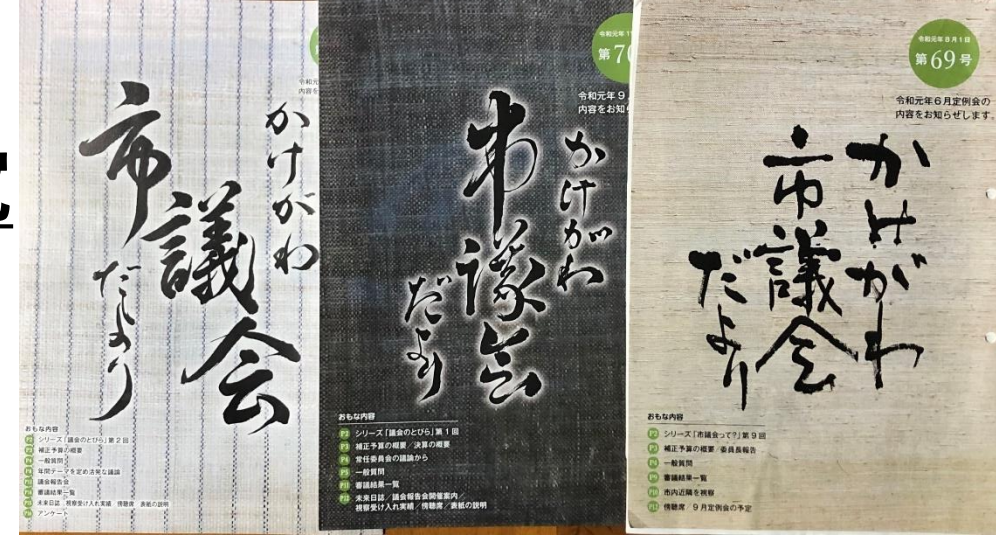 かけがわ
市議会
だより
おもな内容
シリーズ「議会のとびら」第2回
補正予算の概要
一般質問
年間テーマを定め活発な議論
議会報告会
審議結果一覧
未来日誌/視察受け入れ実績/傍聴席/表紙の説明
アンケート
令和元年9
内容をお知ら
かけがわ
市議会
だより
おもな内容
シリーズ「議会のとびら」第1回
補正予算の概要/決算の概要
常任委員会の議論から
一般質問
審議結果一覧
未来日誌/議会報告会開催案内/
視察受け入れ実績/傍聴席/表紙の説明
令和元年8月1日
第69号
令和元年6月定例会の
内容をお知らせします。
かけがわ
市議会
だより
おもな内容
シリーズ「市議会って?」第9回
補正予算の概要/委員長報告
一般質問
審議結果一覧
市内近隣を視察
傍聴席/9月定例会の予定